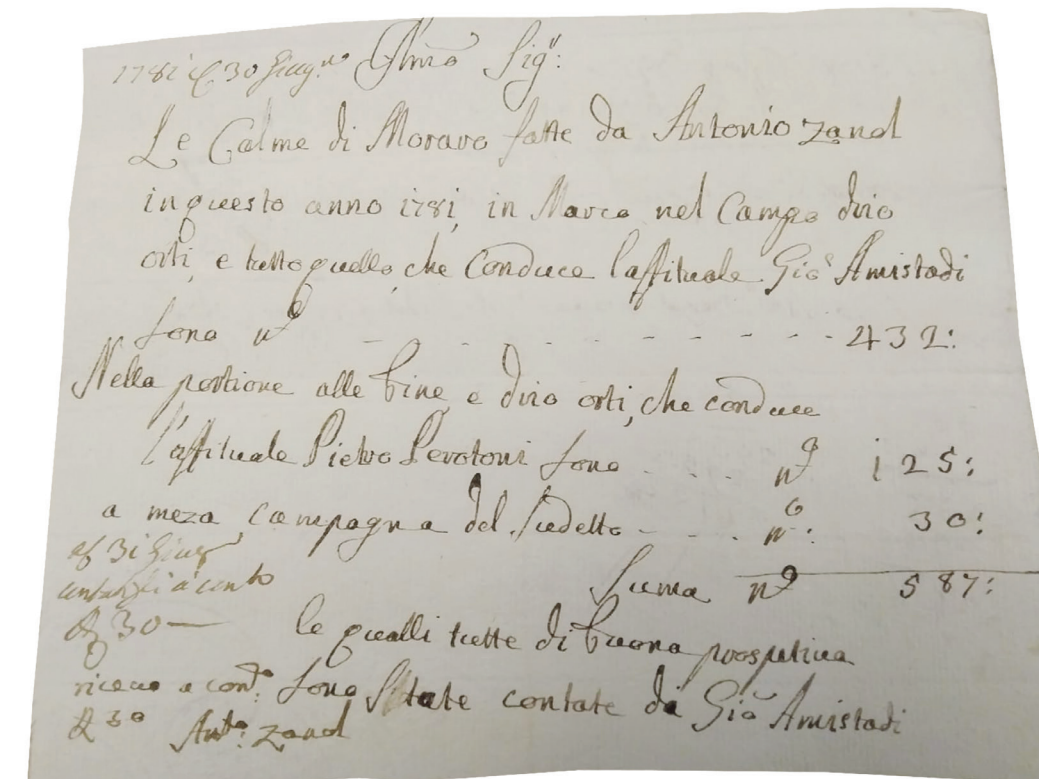 1781 30 Giug.o Illmo Sig.r:
Le Calme di Moraro fatte da Antonio Zanol
in questo anno 1781, in Marco nel Campo drio
orti, e tutto quello, che Conduce l'affituale Gio: Amistadi
sono no - - - - - - - - - 432:
Nella portione alle bine e drio orti, che conduce
l'affituale Pietro Perotoni sono . . . . no 125:
a meza campagna del sudetto - . - . no: 30:
Suma no 587:
le qualli tutte di buona prospetiva
sono state contate da Gio: Amistadi
31 Giug
contanti a conto
30 —
riceuo a conto.
30 Anto: Zanol